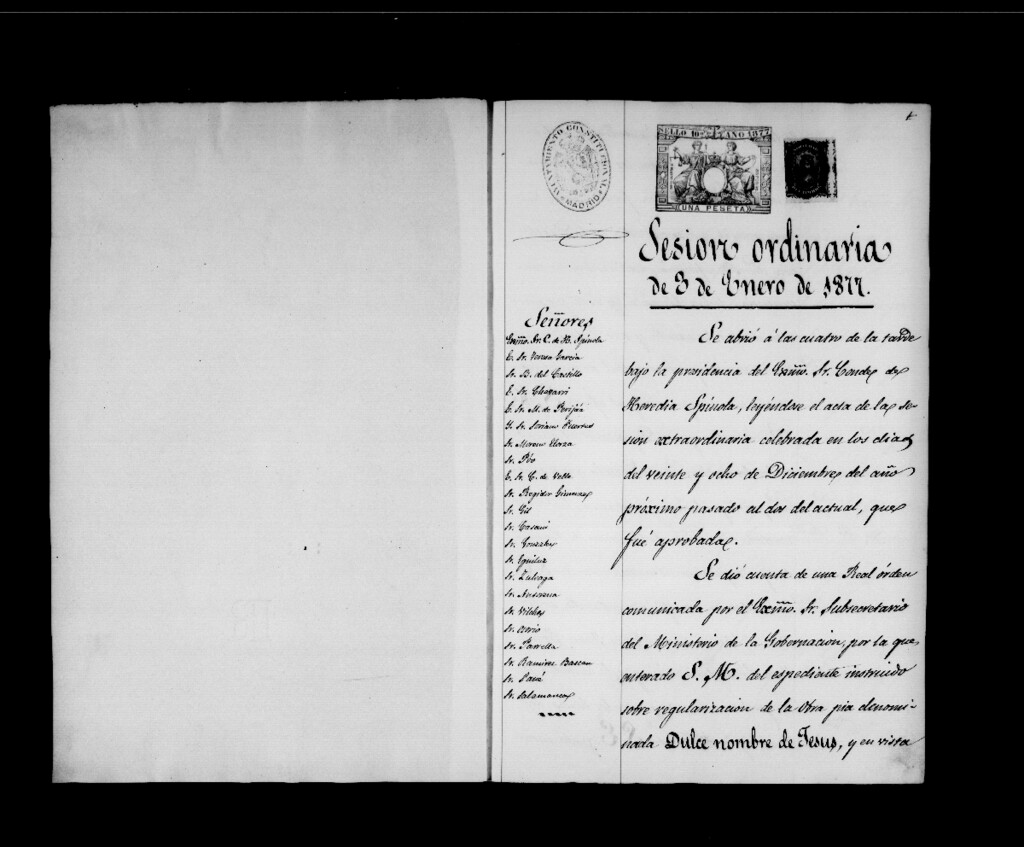 1
AYUNTAMIENTO CONSTITUCIONAL
MADRID
SELLO 10º AÑO 1877
UNA PESETA
Sesion ordinaria
de 3 de Enero de 1877.
Señores
Exmo. Sr. C. de H. Spínola
E. Sr. Garcia
Sr. B. del Castillo
E. Sr. Chavarri
E. Sr. M. de Perijáa
Y. Sr. Soriano Puertas
Sr. Moreno Elorza
Sr. Péo
E. Sr. C. de Velle
Sr. Regidor Gimenez
Sr. Gil
Sr. Casani
Sr. Gonzalez
Sr. Eguiluz
Sr. Zuloaga
Sr.
Sr. Vilches
Sr. Orrio
Sr. Parrella
Sr. Ramirez Bascan
Sr.
Sr. Salamanca
Se abrió á las cuatro de la tarde
bajo la presidencia del Exmo. Sr. Conde de
Heredia Spínola, leyéndose el acta de la se-
sión extraordinaria celebrada en los dias
del veinte y ocho de Diciembre del año
próximo pasado al dos del actual, que
fué aprobada.
Se dió cuenta de una Real órden
comunicada por el Exmo. Sr. Subsecretario
del Ministerio de la Gobernacion, por la que
enterado S. M. del espediente instruido
sobre regularizacion de la Obra pia denomi-
nada Dulce nombre de Jesus, y en vista